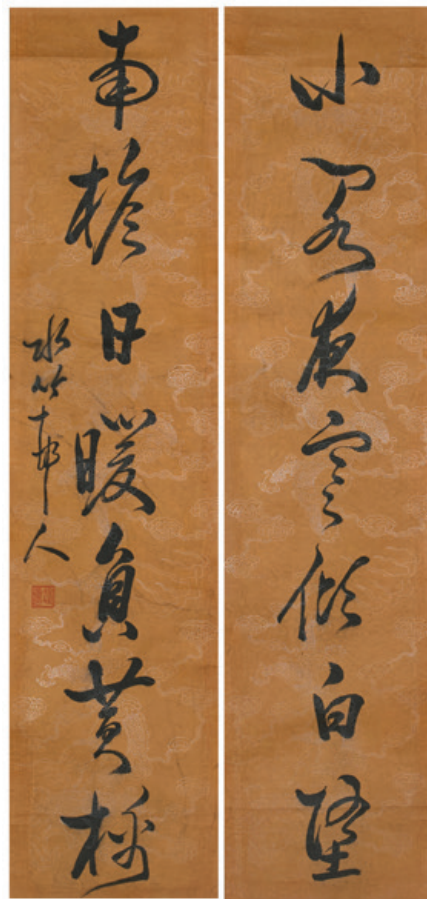 小閣夜寒傾白墮
南檐日暖負黃棉
水竹邨人